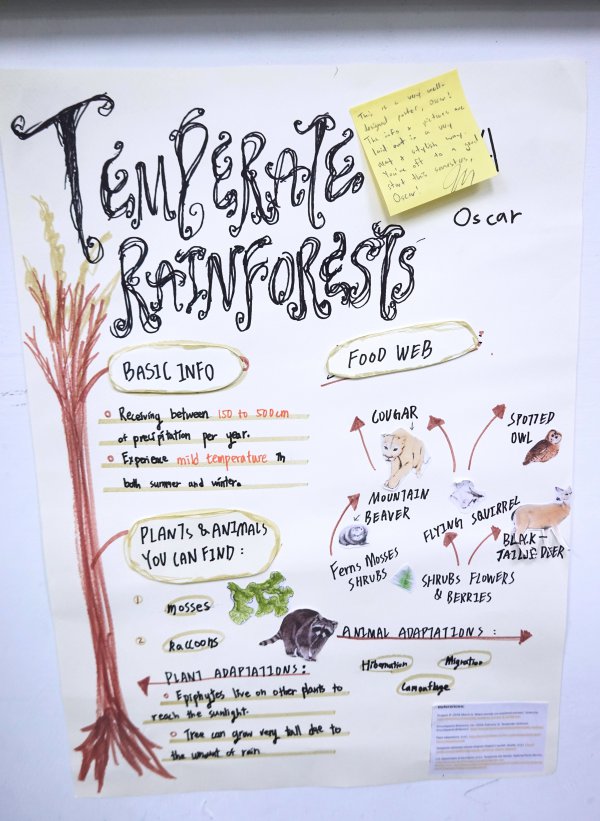 TEMPERATE
RAINFORESTS
This is a very well-
designed poster, Oscar!
The info & pictures are
laid out in a very
neat & stylish way.
You're off to a good
start this semester,
Oscar!
Oscar
BASIC INFO
Receiving between 150 to 500cm
of precipitation per year.
Experience mild temperature in
both summer and winter.
PLANTS & ANIMALS
YOU CAN FIND:
1 mosses
2 Raccoons
PLANT ADAPTATIONS:
Epiphytes live on other plants to
reach the sunlight.
Tree can grow very tall due to
the amount of rain
FOOD WEB
COUGAR
SPOTTED
OWL
MOUNTAIN
BEAVER
FLYING SQUIRREL
BLACK-
TAILED DEER
Ferns Mosses
SHRUBS
SHRUBS FLOWERS
& BERRIES
ANIMAL ADAPTATIONS:
Hibernation
Migration
Camouflage
References: